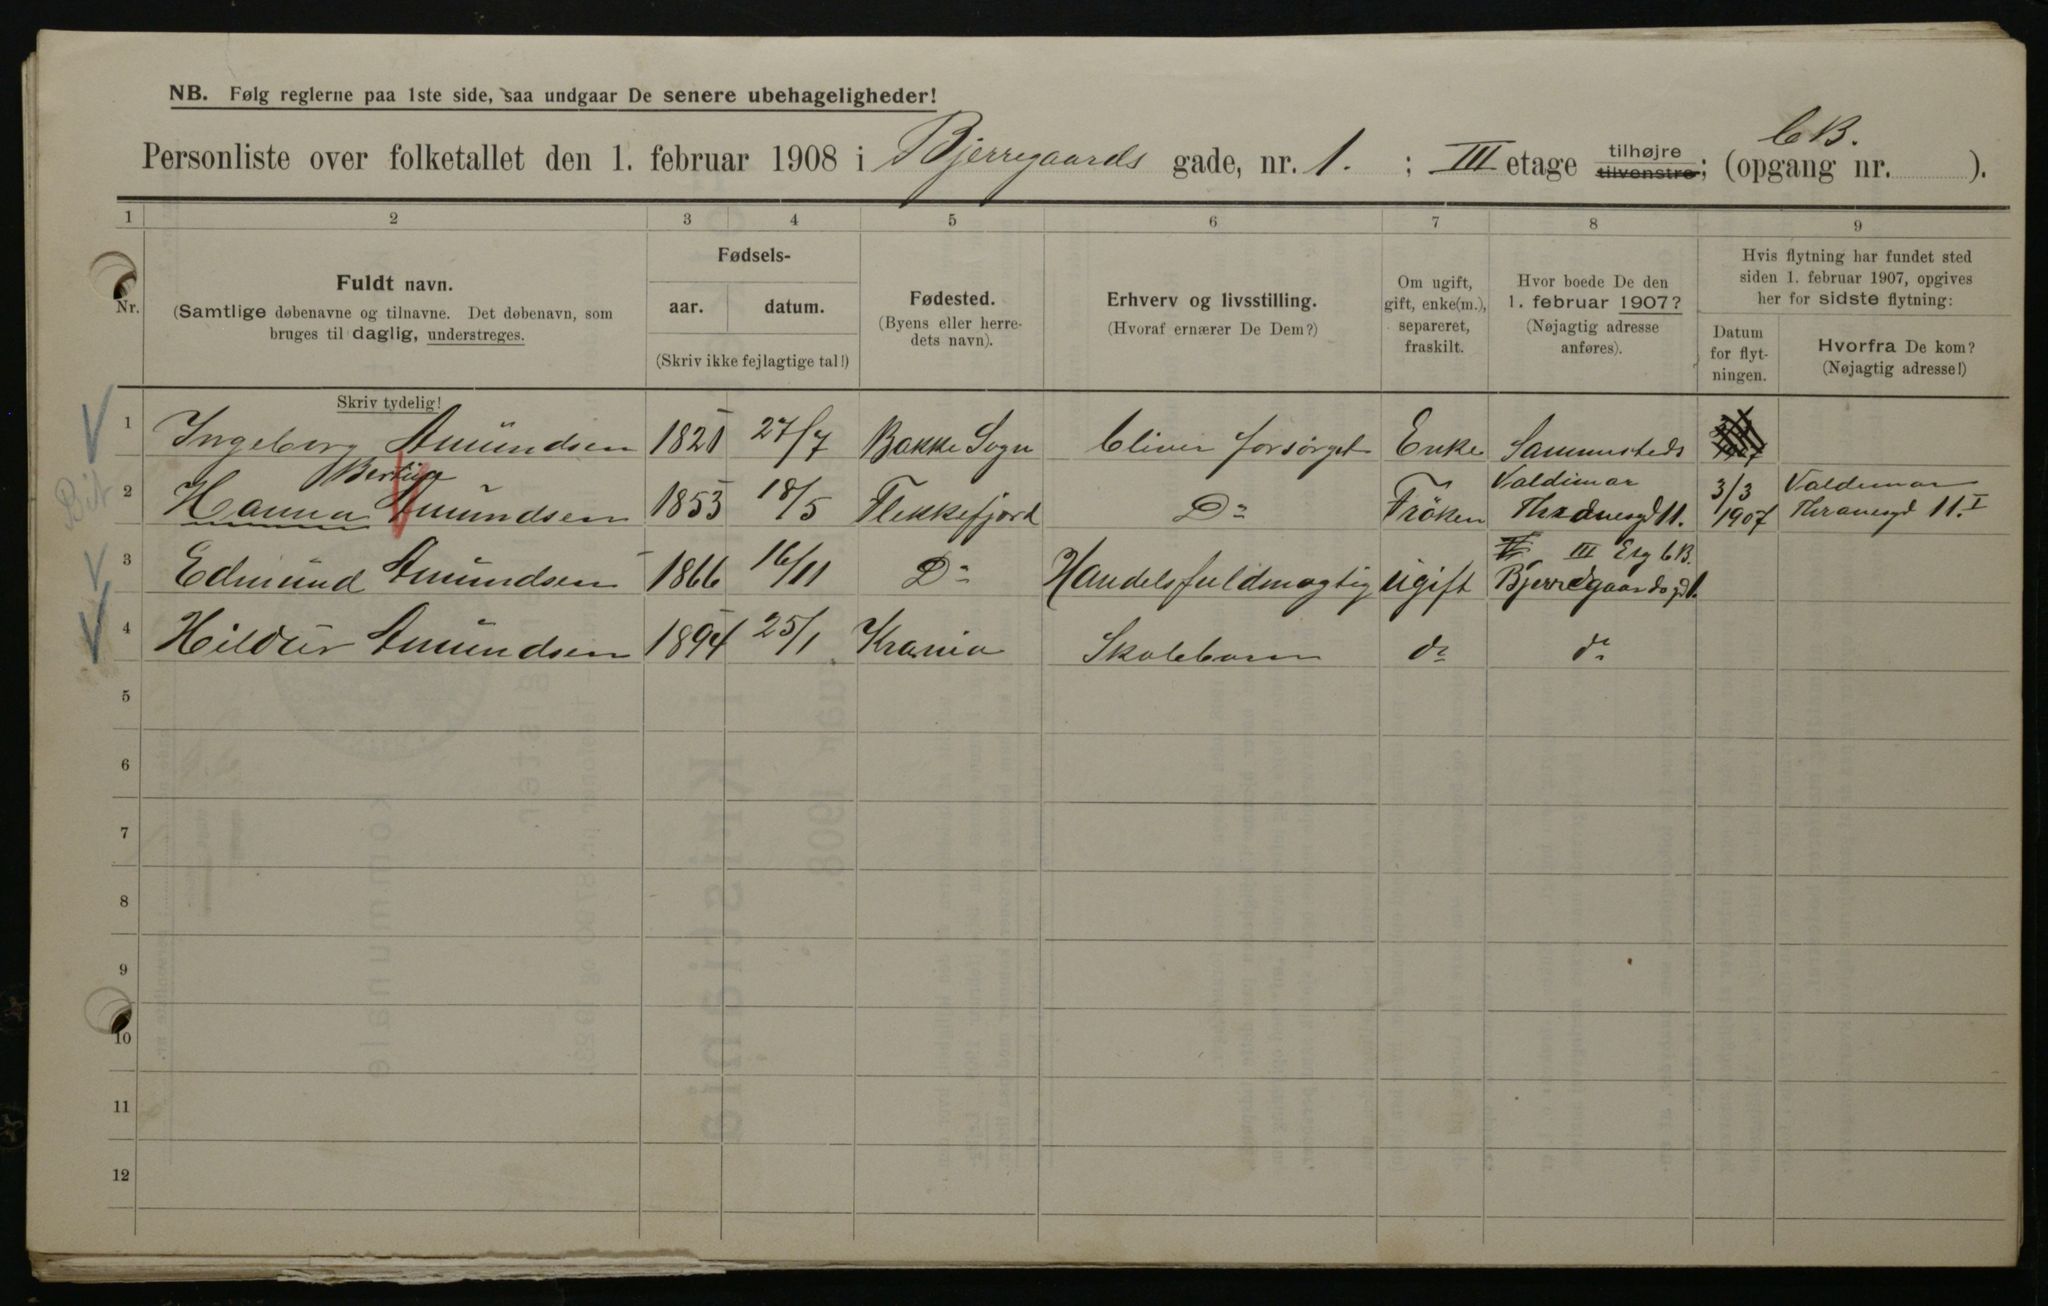 NB. Følg reglerne paa 1ste side, saa undgaar De senere ubehageligheder!
Personliste over folketallet den 1. februar 1908 i Bjerregaards gade, nr. 1. ; III etage tilhøjre tilvenstre; (opgang nr. B. ).
1 2 3 4 5 6 7 8 9
Nr. Fuldt navn. (Samtlige døbenavne og tilnavne. Det døbenavn, som bruges til daglig, understreges.
Fødsels-
aar. datum.
(Skriv ikke fejlagtige tal!)
Fødested.
(Byens eller herre-
dets navn).
Erhverv og livsstilling.
(Hvoraf ernærer De Dem?)
Om ugift,
gift, enke(m.),
separeret,
fraskilt.
Hvor boede De den
1. februar 1907?
(Nøjagtig adresse
anføres).
Hvis flytning har fundet sted
siden 1. februar 1907, opgives
her for sidste flytning:
Datum
for flyt-
ningen.
Hvorfra De kom?
(Nøjagtig adresse!)
Skriv tydelig!
1 Ingeborg Amundsen 1821 27/7 Bakke Sogn bliver forsørget Enke Sammesteds
2 Hanna Amundsen 1853 18/5 Flekkefjord Do Frøken Valdemar Thranesgd 11. 3/3 1907 Valdemar Thranesgd 11. I
3 Edmund Amundsen 1866 16/11 Do Handelsfuldmægtig ugift III Etg B. Bjerregaardsgd 1.
4 Hildur Amundsen 1894 25/1 Krania Skolebarn do do
5
6
7
8
9
10
11
12